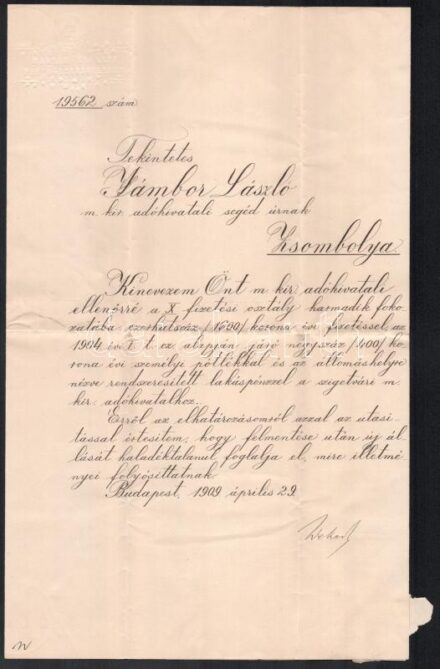 19562 szám
Tekintetes
Jámbor László
m. kir. adóhivatali segéd úrnak
Zsombolya
Kinevezem Önt m. kir. adóhivatali
ellenőrré a X fizetési osztály harmadik foko-
zatába ezerhatszáz /1600/ korona évi fizetéssel, az
1904 évi I. t. cz. alapján járó négyszáz /400/ ko-
rona évi személyi pótlékkal és az állomáshelyre
nézve rendszeresített lakáspénzzel a szigetvári m.
kir. adóhivatalhoz.
Erről az elhatározásomról azzal az utasí-
tással értesítem, hogy felmentése után új ál-
lását haladéktalanul foglalja el, mire illetmé-
nyei folyósíttatnak.
Budapest, 1909 április 29.